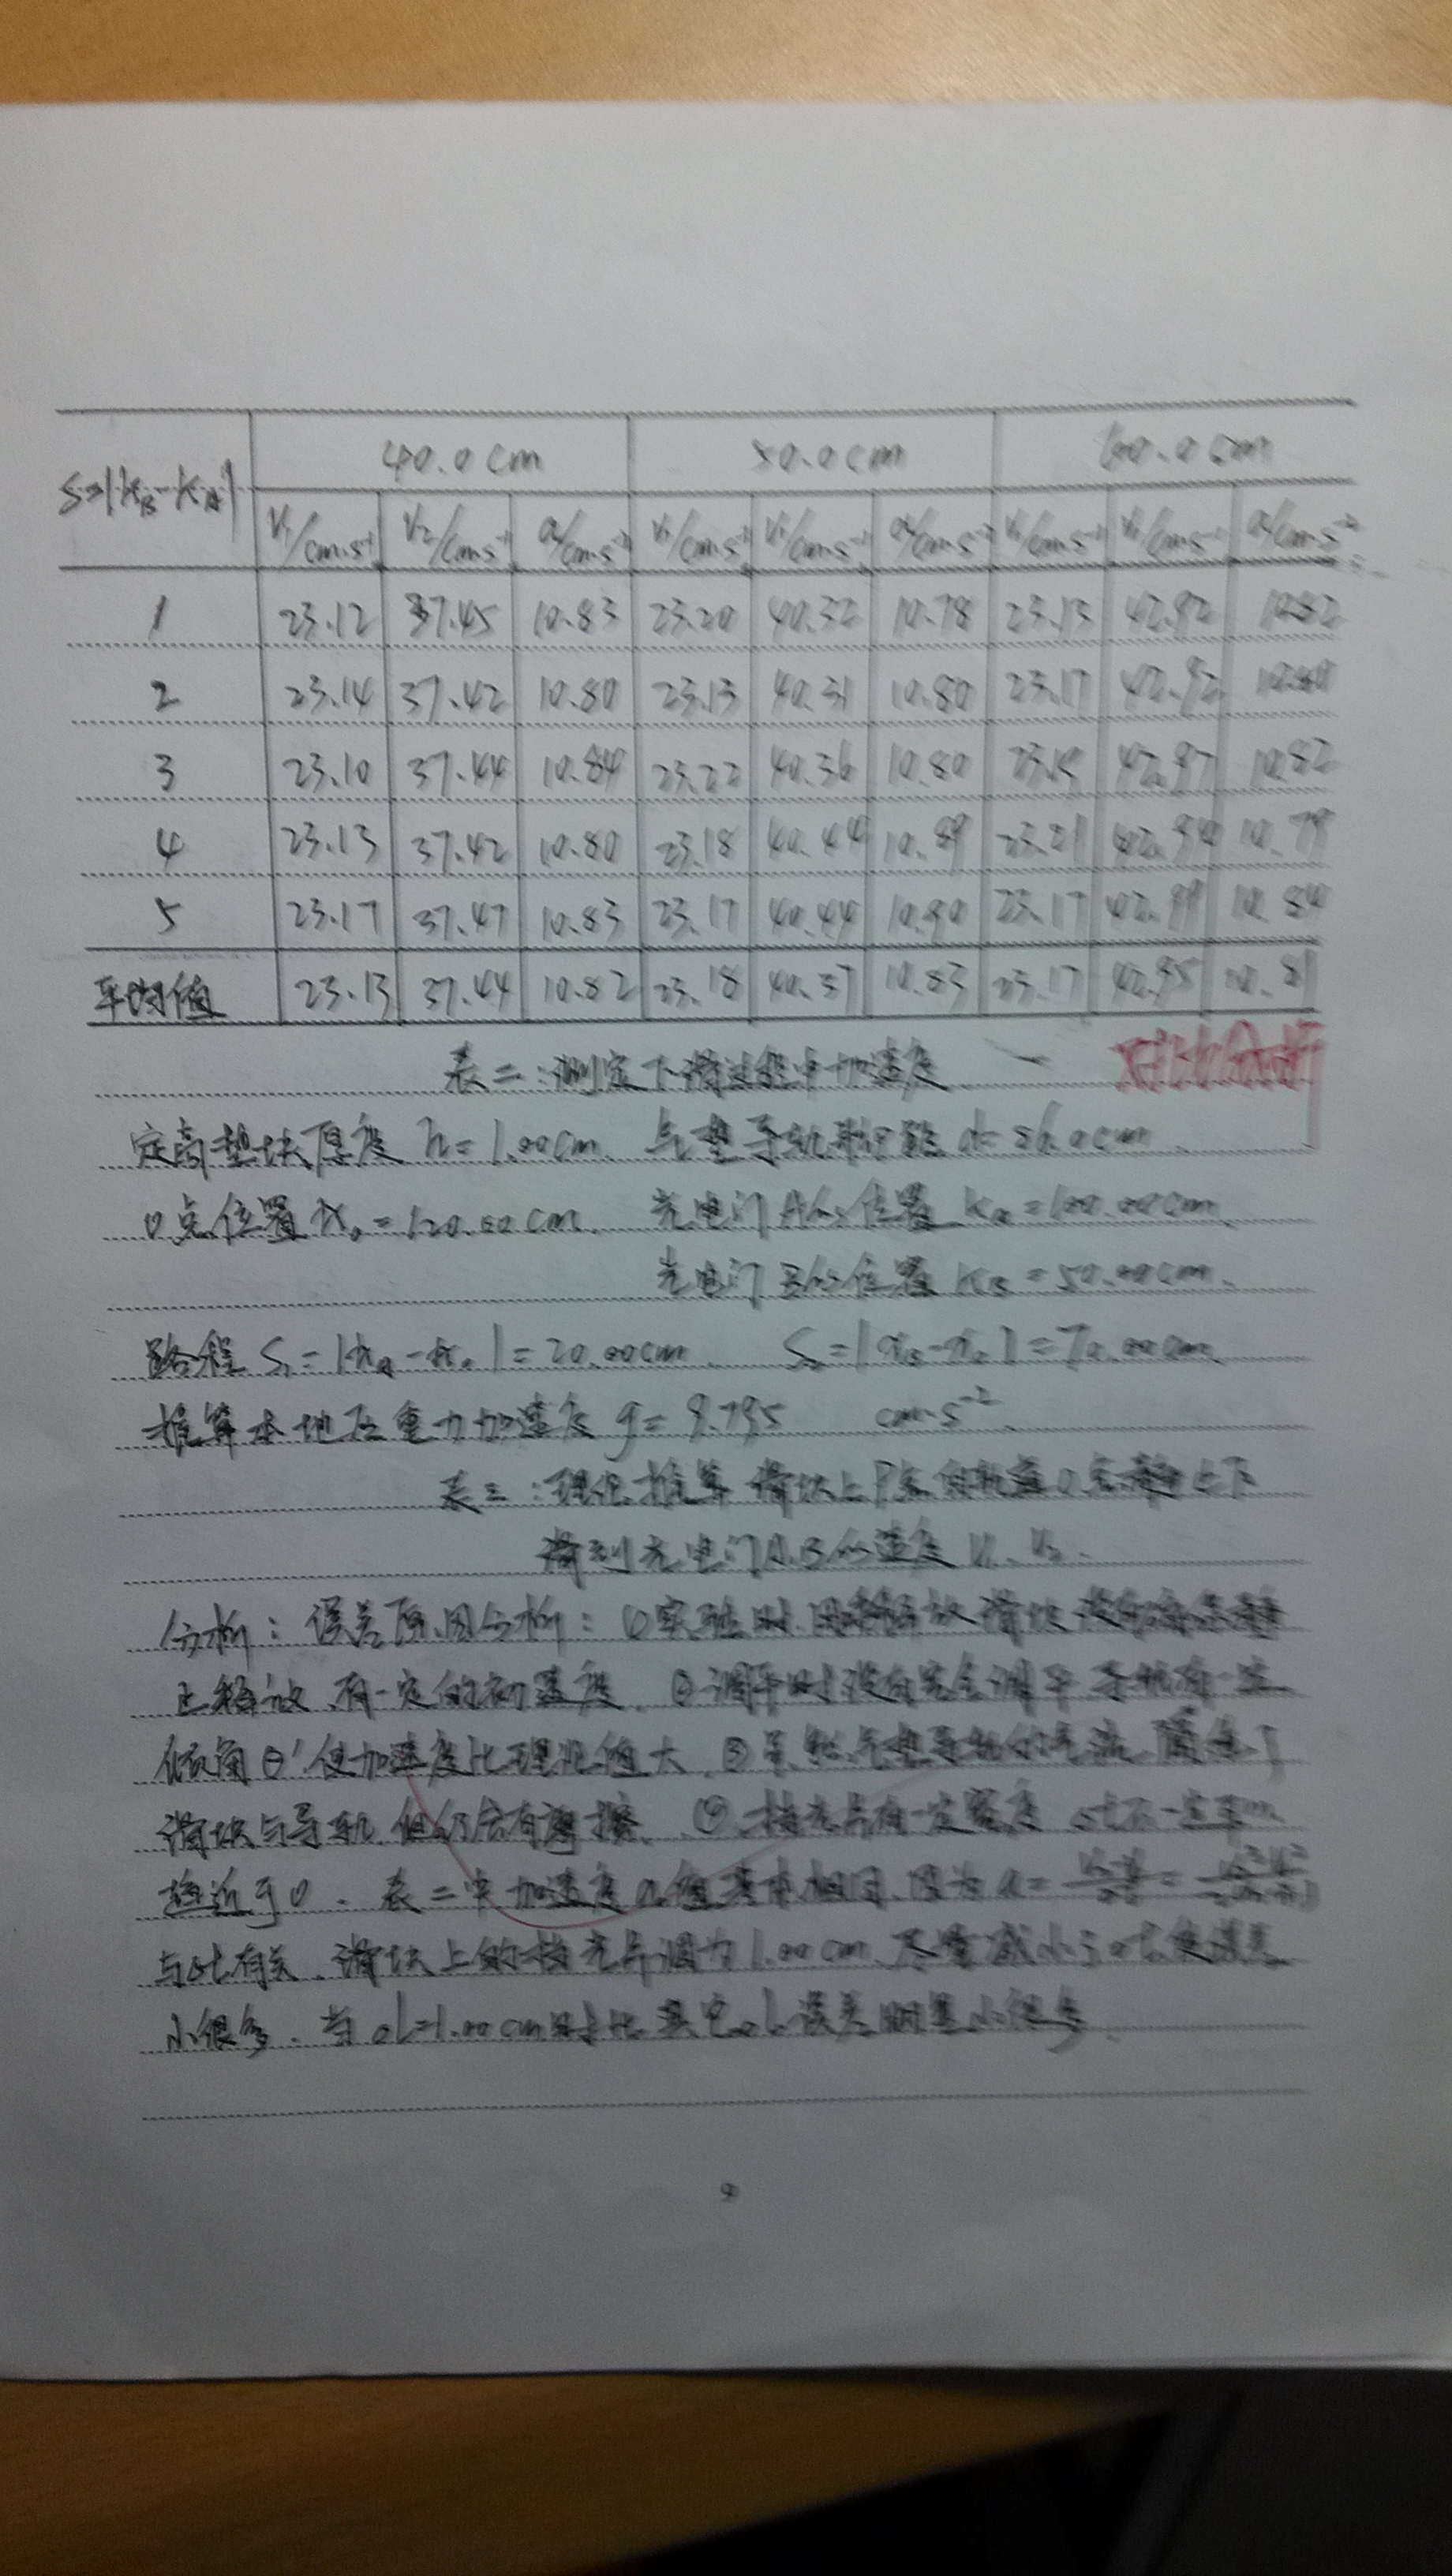 S=|x_B-x_A| 40.0cm 50.0cm 60.0cm
V₁/cm·s⁻¹ V₂/cm·s⁻¹ a/cm·s⁻² V₁/cm·s⁻¹ V₁/cm·s⁻¹ a/cm·s⁻² V₁/cm·s⁻¹ V₁/cm·s⁻¹ a/cm·s⁻²
1 23.12 37.45 10.83 23.20 40.32 10.78 23.13 42.92 10.82
2 23.14 37.42 10.80 23.13 40.31 10.80 23.17 42.92 10.80
3 23.10 37.44 10.84 23.22 40.36 10.80 23.15 42.97 10.82
4 23.13 37.42 10.80 23.18 40.44 10.89 23.21 42.94 10.79
5 23.17 37.47 10.83 23.17 40.44 10.90 23.17 42.99 10.84
平均值 23.13 37.44 10.82 23.18 40.37 10.83 23.17 42.95 10.81
表二:测定下滑过程中加速度
对比分析
定高垫块厚度 h=1.00cm 气垫导轨 d=86.0cm
0点位置 x₀=120.00cm. 光电门A的位置 x_A=100.00cm.
光电门B的位置 x_B=50.00cm.
路程 S₁=|x_A-x₀|=20.00cm S₂=|x_B-x₀|=70.00cm
推算本地区重力加速度 g=9.795 cm·s⁻²
表三:理论推算滑块上P点自轨道0点静止下
滑到光电门A.B的速度 V₁、V₂.
分析:误差原因分析:①实验时,释放滑块
止释放,有一定的初速度. ②调平时没有完全调平 导轨有一定
倾角θ′使加速度比理论值大. ③虽然气垫导轨的气流
滑块与导轨,但仍会有摩擦. ④挡光片有一定宽度 Δt不一定
趋近于0. 表二中加速度a值基本相同,因为a=
与Δt有关.滑块上的挡光片调为1.00cm,尽量减小了Δt,使误差
小很多. 当Δl=1.00cm时比其它Δl误差明显小很多
9